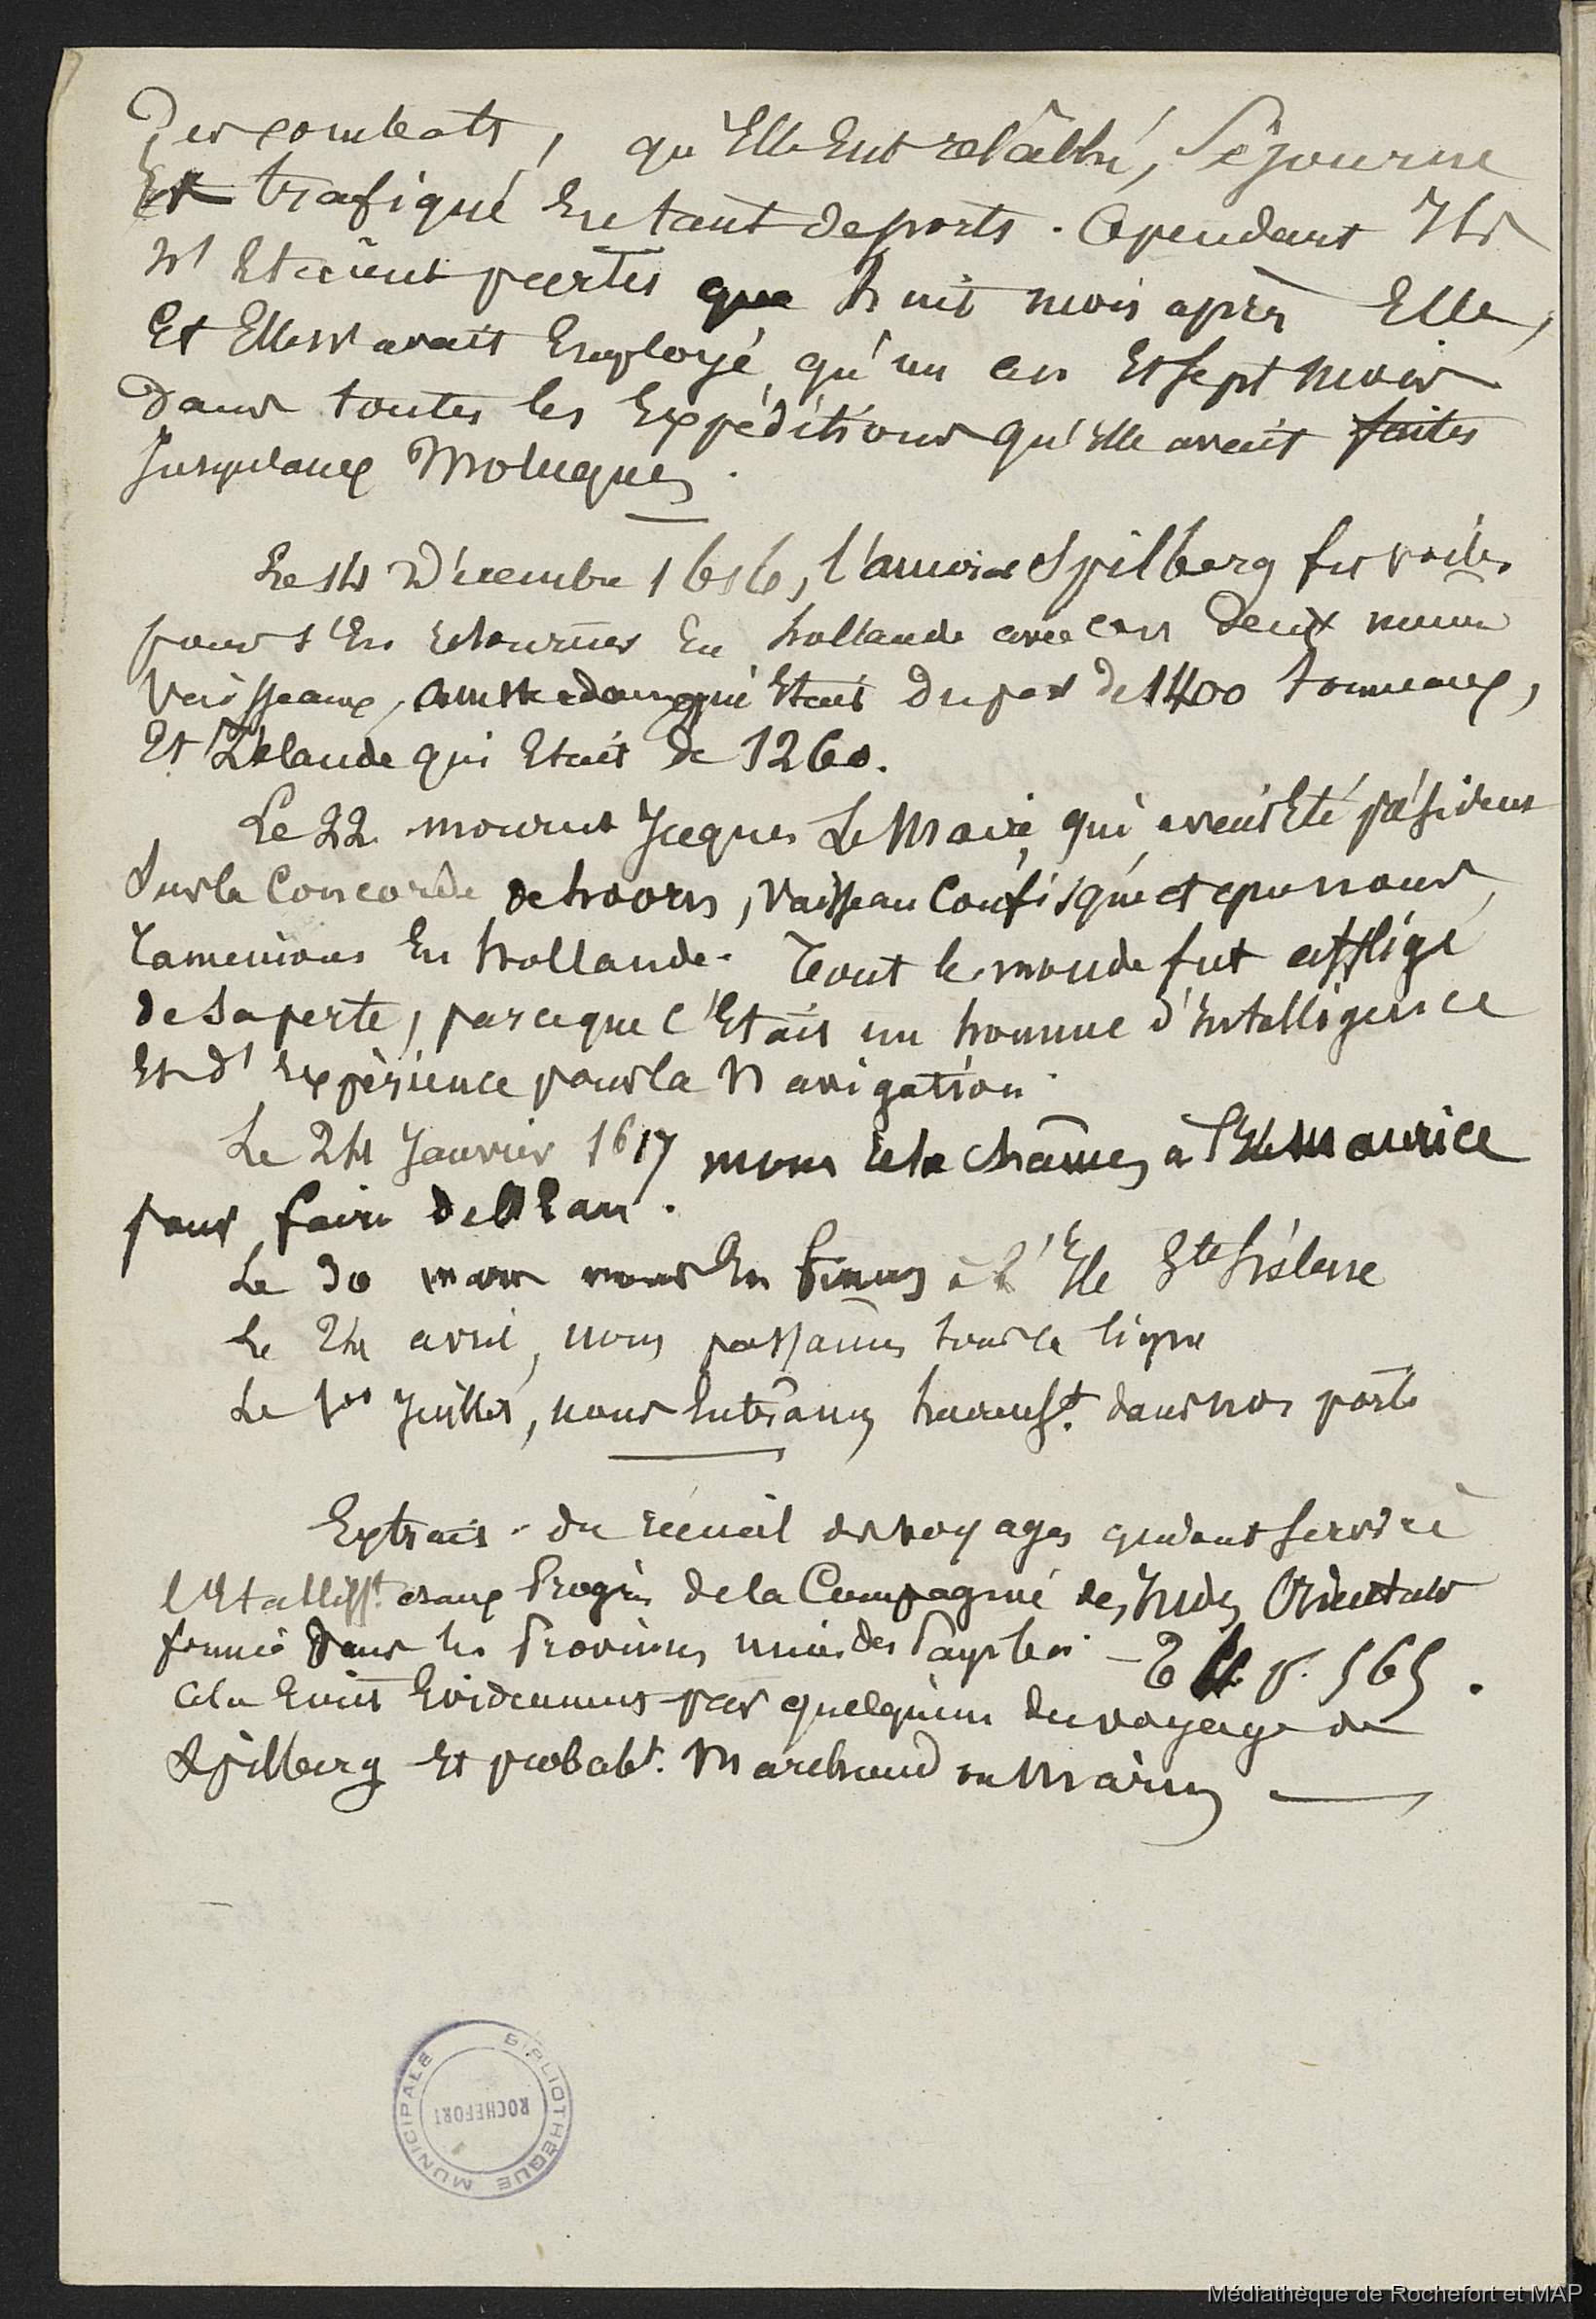 Des combats, qu'Elle Eut relâché, Séjourné
Et trafiqué En tant de ports. Cependant Ils
n'Etaient partis que huit mois après Elle,
Et Elle n'avait Employé qu'un an Et sept mois
Dans toutes les Expéditions qu'Elle avait faites
Jusqu'aux Moluques.
Le 14 Décembre 1616, l'amiral Spilberg fit voiles
pour s'En retourner En hollande avec ces Deux mêmes
Vaisseaux, amsterdam qui Etait Du port de 1400 tonneaux,
Et Zélande qui Etait de 1260.
Le 22 mourut Jacques Le Maire qui avait Eté président
Sur la Concorde de hoorn, Vaisseau Confisqué et que nous
ramenions En hollande. Tout le monde fut affligé
de sa perte, parceque c'Etait un homme d'Intelligence
Et d'Expérience pour la Navigation.
Le 24 Janvier 1617 nous relachâmes à l'Ile Maurice
pour faire De l'Eau.
Le 30 mars nous En fimes à l'Ile Ste hélène
Le 24 avril, nous passâmes sous la ligne
Le 1er Juillet, nous Entrâmes heureust. dans nos ports
Extrait du recueil des voyages qui ont servi à
l'Etablisst. et aux Progrès de la Compagnie des Indes Orientales
formée Dans les Provinces unies des Pays bas - T 4. p. 565.
Cela Ecrit Evidemment par quelqu'un du voyage de
Spilberg Et probabt. Marchand ou Marin
BIBLIOTHÈQUE MUNICIPALE
ROCHEFORT
Médiathèque de Rochefort et MAP